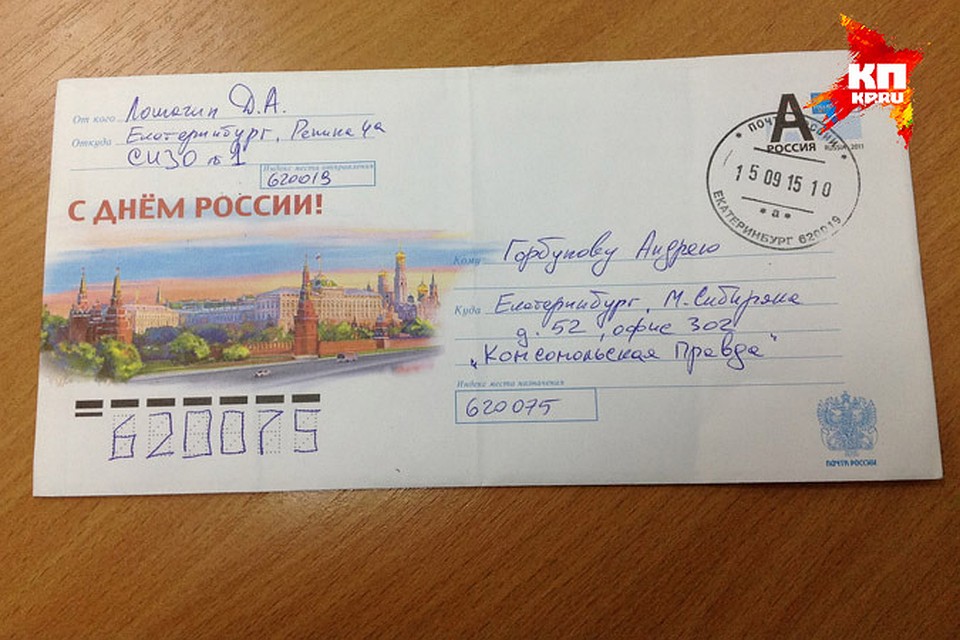 КП
KP.RU
От кого Лошагин Д.А.
Откуда Екатеринбург, Репина 4а
СИЗО №1
Индекс места отправления
620019
С ДНЁМ РОССИИ!
А
РОССИЯ
RUSSIA 2011
ПОЧТА РОССИИ
15 09 15 10
а
ЕКАТЕРИНБУРГ 620019
Кому Горбунову Андрею
Куда Екатеринбург, М.Сибиряка
д. 52, офис 302
„Комсомольская Правда"
Индекс места назначения
620075
620075
ПОЧТА РОССИИ